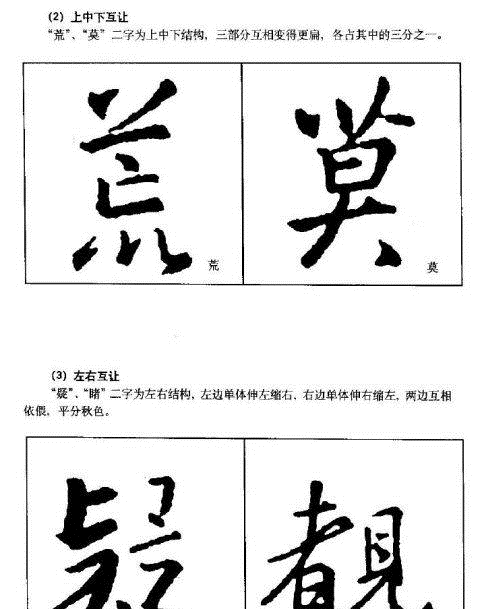 (2) 上中下互让
“荒”、“莫”二字为上中下结构，三部分互相变得更扁，各占其中的三分之一。
荒 莫
荒 莫
(3) 左右互让
“疑”、“睹”二字为左右结构，左边单体伸左缩右、右边单体伸右缩左，两边互相
依偎，平分秋色。
疑 覩